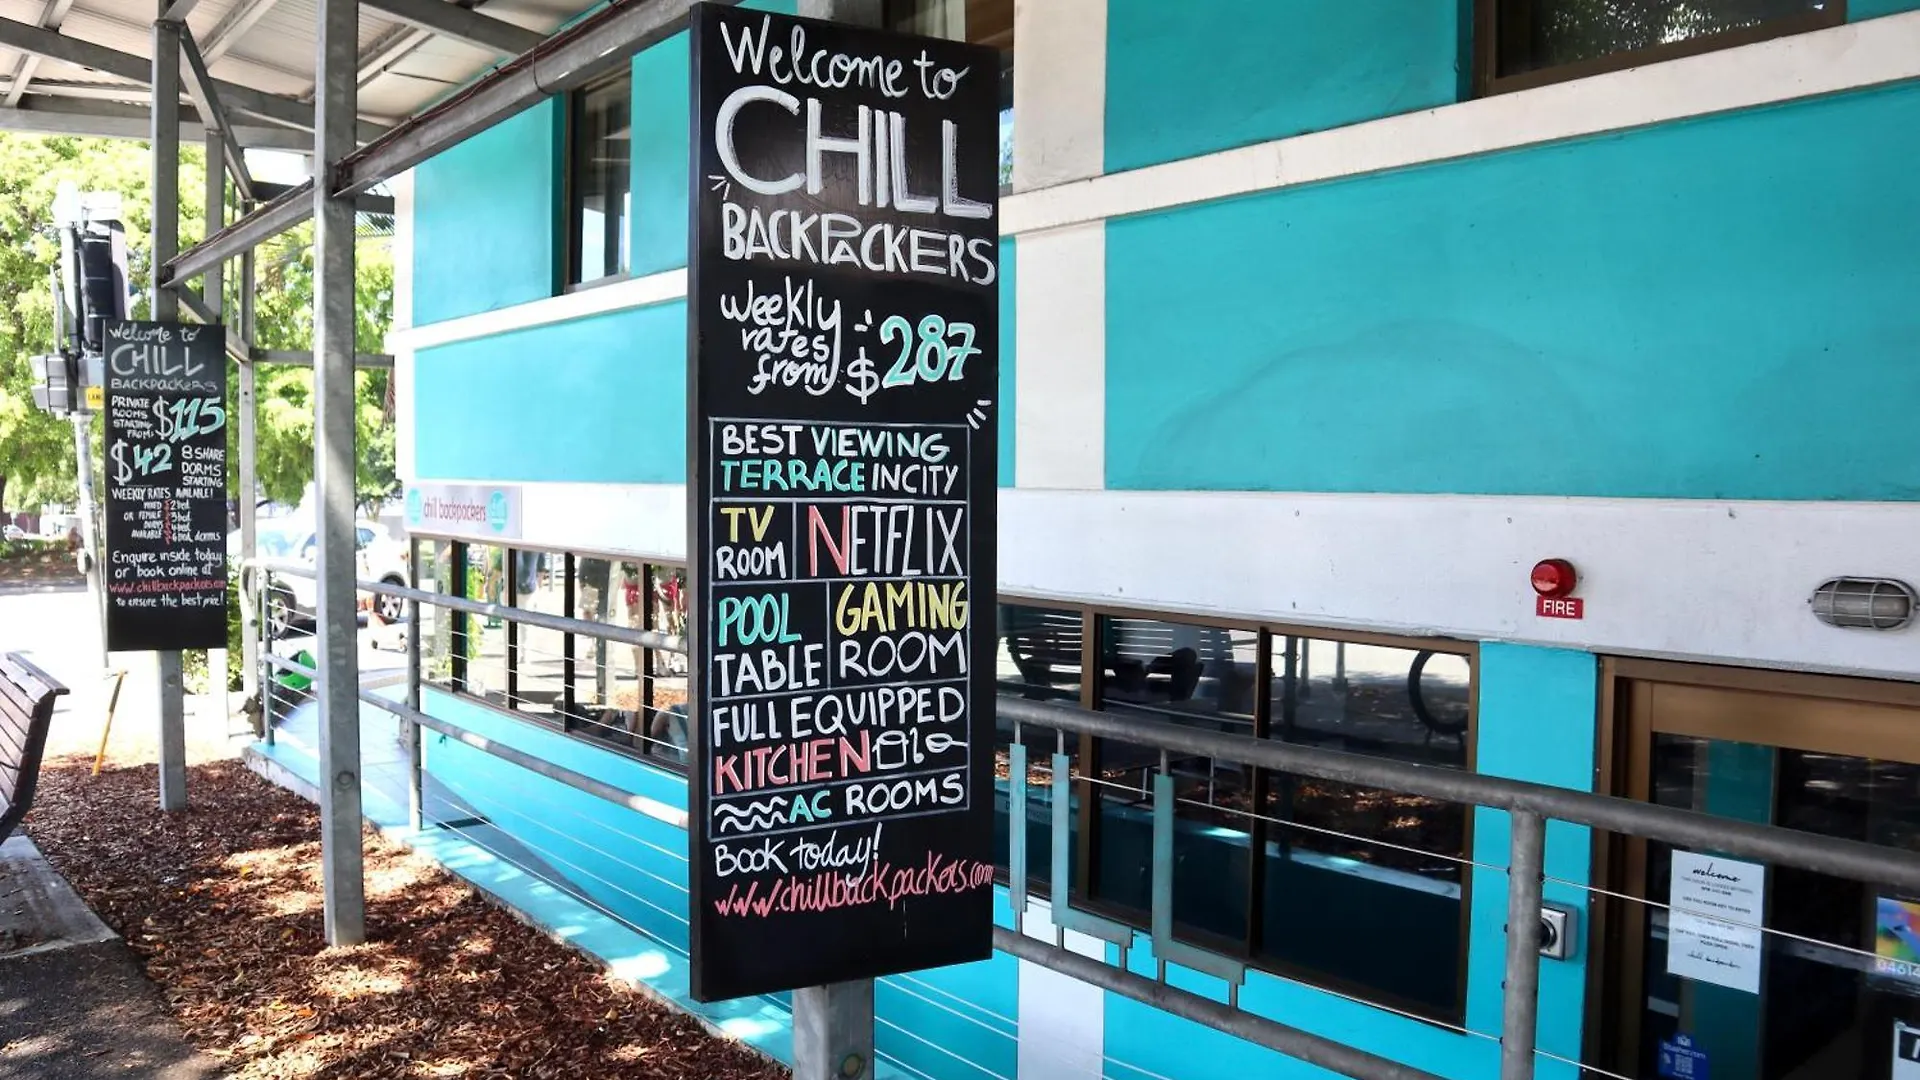 Welcome to
CHILL
BACKPACKERS
Weekly
rates
from
$287
BEST VIEWING
TERRACE IN CITY
TV
ROOM
NETFLIX
POOL
TABLE
GAMING
ROOM
FULL EQUIPPED
KITCHEN
AC ROOMS
BOOK today!
www.chillbackpackers.com
Welcome to
CHILL
BACKPACKERS
PRIVATE
ROOMS
STARTING
FROM:
$115
$42
8 SHARE
DORMS
STARTING
WEEKLY RATES AVAILABLE!
MIXED
OR FEMALE
DORMS
AVAILABLE
2 bed
3 bed
4 bed
6 bed dorms
Enquire inside today
or book online at
www.chillbackpackers.com
to ensure the best price!
chill backpackers
FIRE
welcome
chill backpackers
0461